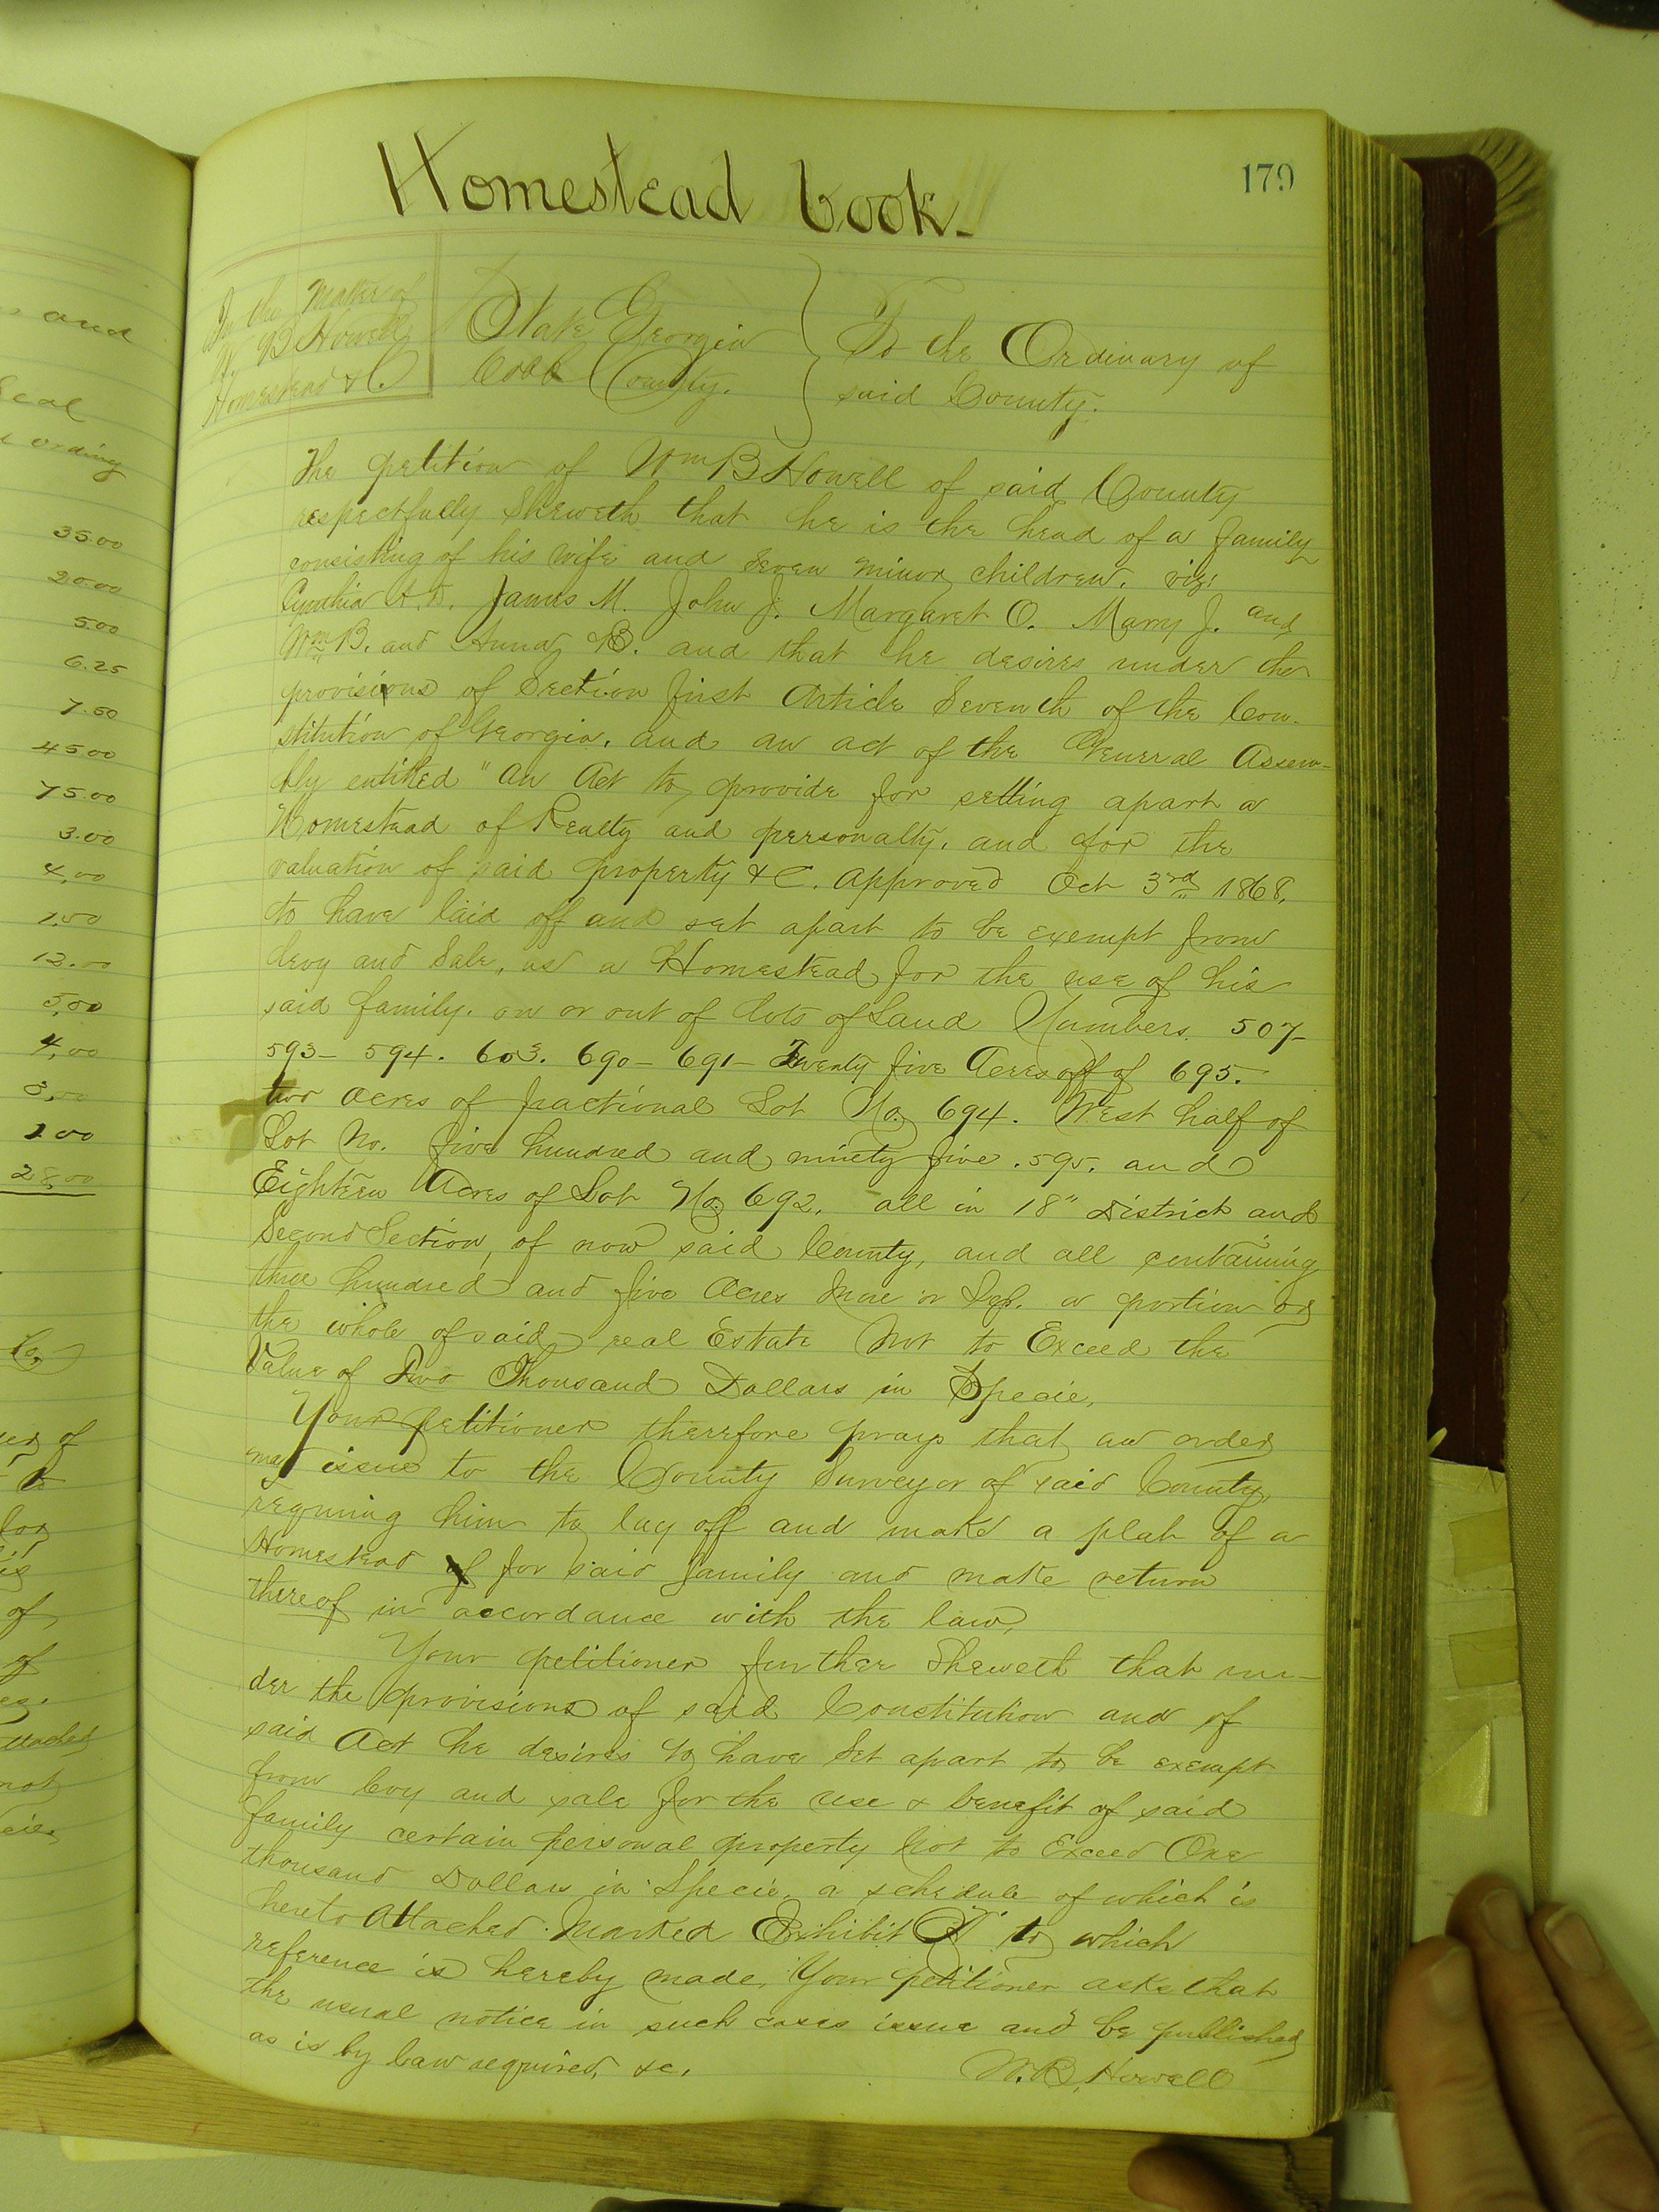 and
Seal
ording
35.00
20.00
5.00
6.25
7.50
45.00
75.00
3.00
4,00
1.50
12.00
5,00
4,00
3,00
1 00
28,00
Co,
of
of,
of
not
179
Homestead book.
In the Matter of
W. B Howell
Homestead &C.
State Georgia
Cobb County.
To the Ordinary of
said County.
The petition of Wm B Howell of said County
respectfully Sheweth that he is the head of a family
consisting of his wife and seven minor children. viz:
Cynthia A. D. James M. John J. Margaret O. Mary J. and
Wm B. and Anna B. and that he desires under the
provisions of Section first Article Seventh of the Con-
stitution of Georgia. and an act of the General Assem-
bly entitled "An Act to provide for setting apart a
Homestead of Realty and personalty. and for the
valuation of said property &C. Approved Oct 3rd 1868.
to have laid off and set apart to be exempt from
levy and Sale, as a Homestead for the use of his
said family. on or out of lots of Land Numbers. 507-
593- 594. 603. 690- 691- Twenty five Acres off of 695.
two acres of fractional Lot No. 694. West half of
Lot No. five hundred and ninety five .595. and
Eighteen Acres of Lot No 692. all in 18" District and
Second Section, of now said County, and all containing
three hundred and five Acres More or Less. a portion or
the whole of said real Estate Not to Exceed the
Value of Two Thousand Dollars in Specie,
Your petitioner therefore prays that an order
may issue to the County Surveyor of said County,
requiring him to lay off and make a plat of a
Homestead for said family and make return
thereof in accordance with the law,
Your petitioner further Sheweth that un-
der the provisions of said Constitution and of
said Act he desires to have Set apart to be exempt
from levy and sale for the use & benefit of said
family certain personal property Not to Exceed One
thousand Dollars in Specie, a schedule of which is
hereto Attached Marked Exhibit A to which
reference is hereby made, Your petitioner asks that
the usual notice in such cases issue and be published
as is by law required, &c,
W. B. Howell